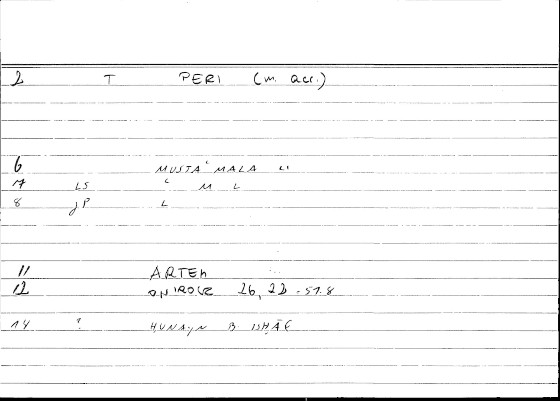 2 T PERI (m. acc.)
6 MUSTAʿMALA LI
17 LS ʿ M L
8 JP L
11 ARTEM
12 ONIROCR 26, 23 - 51.8
14 ? HUNAYN B ISHĀQ